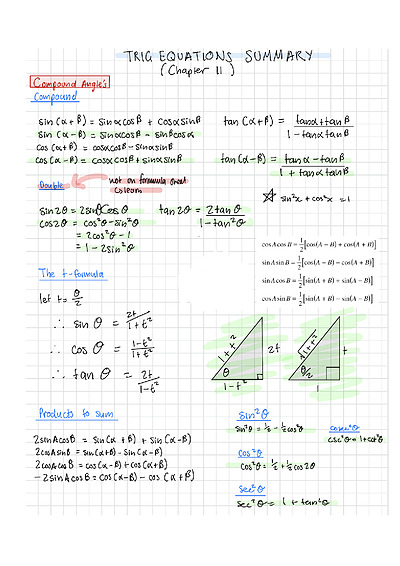 TRIG EQUATIONS SUMMARY
(Chapter 11)
Compound Angle's
Compound
sin(α+β) = sinαcosβ + cosαsinβ
sin(α-β) = sinαcosβ - sinβcosα
cos(α+β) = cosαcosβ - sinαsinβ
cos(α-β) = cosαcosβ + sinαsinβ
tan(α+β) = tanα+tanβ / 1-tanαtanβ
tan(α-β) = tanα-tanβ / 1+tanαtanβ
Double
not on formula sheet
so learn
sin²x + cos²x = 1
sin2θ = 2sinθcosθ
cos2θ = cos²θ-sin²θ
= 2cos²θ-1
= 1-2sin²θ
tan2θ = 2tanθ / 1-tan²θ
cos A cos B = 1/2[cos(A − B) + cos(A + B)]
sin A sin B = 1/2[cos(A − B) − cos(A + B)]
sin A cos B = 1/2[sin(A + B) + sin(A − B)]
cos A sin B = 1/2[sin(A + B) − sin(A − B)]
The t-formula
let t = θ/2
∴ sin θ = 2t/1+t²
∴ cos θ = 1-t²/1+t²
∴ tan θ = 2t/1-t²
1+t²
2t
θ
1-t²
√1+t²
t
θ/2
1
Products to sum
2sinAcosB = sin(α+β) + sin(α-β)
2cosAsinB = sin(α+β) - sin(α-β)
2cosAcosB = cos(α-β) + cos(α+β)
-2sinAcosB = cos(α-β) - cos(α+β)
sin²θ
sin²θ = ½ - ½cos²θ
cosec²θ
csc²θ = 1+cot²θ
cos²θ
cos²θ = ½ + ½cos2θ
sec²θ
sec²θ = 1 + tan²θ